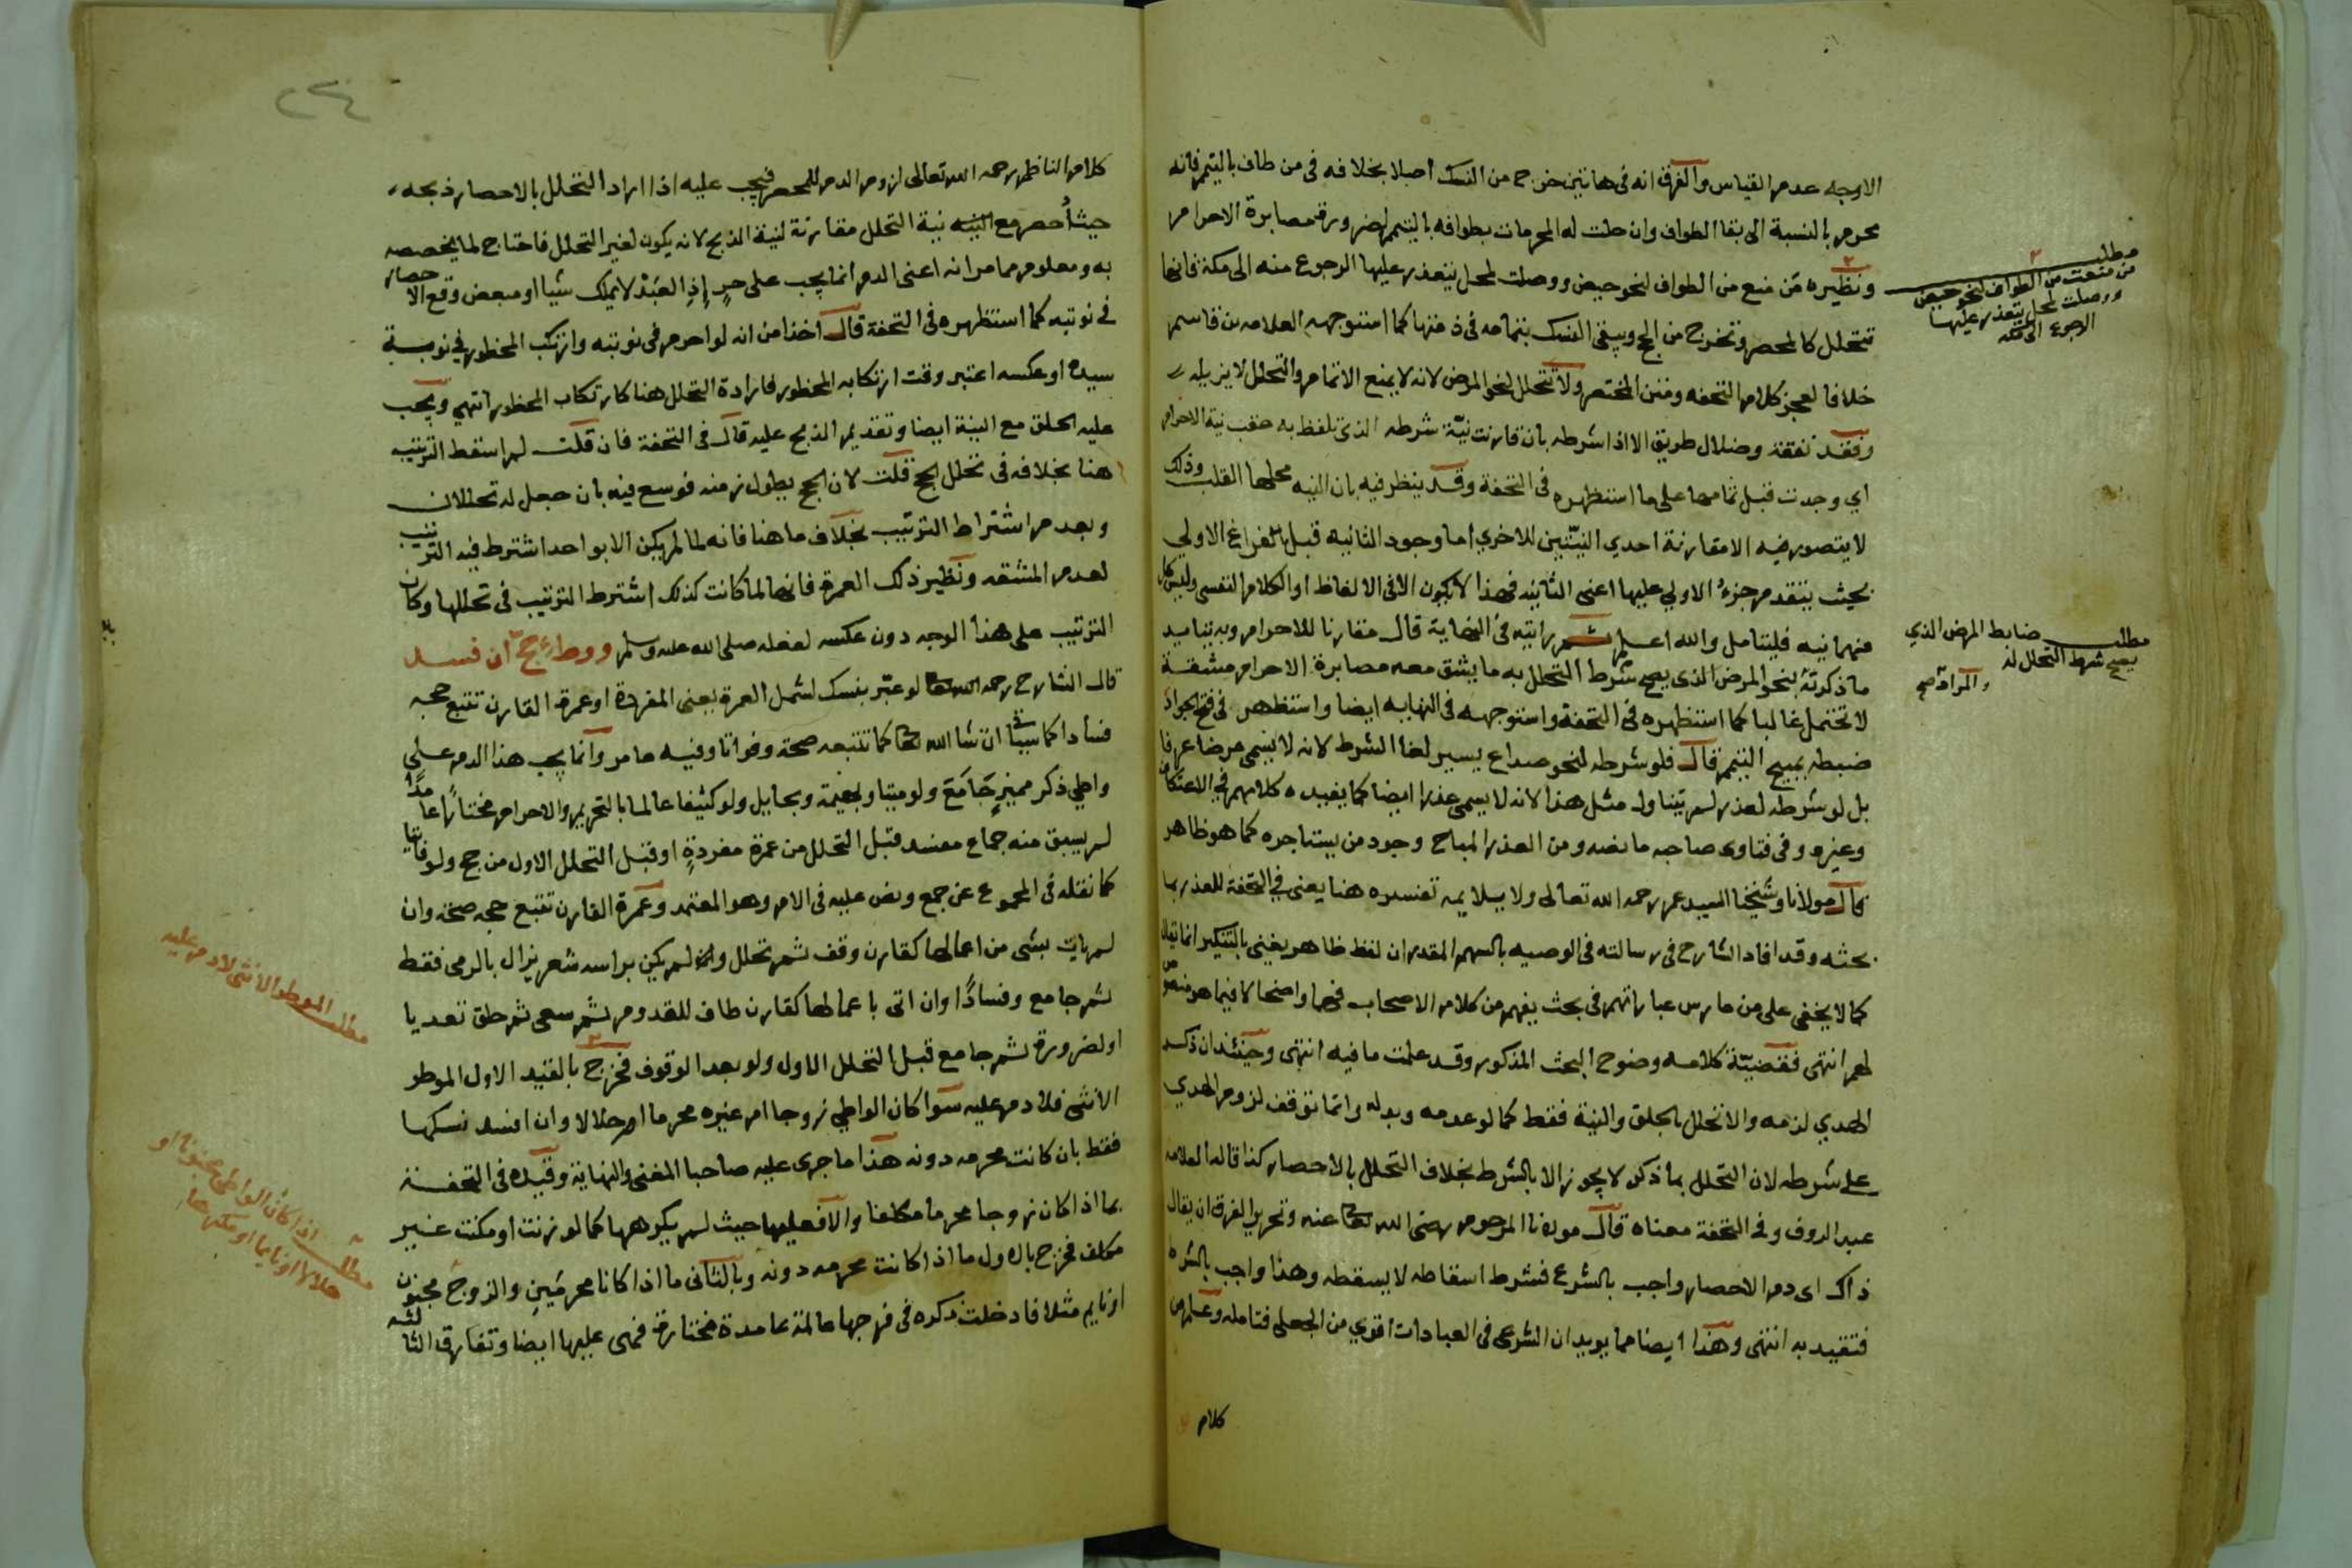 الاوجه عدم القياس والفرق انه في هاتين خرج من النسك اصلا بخلافه في من طاف بالتيمم فانه
محرم بالنسبة الى بقا الطواف وان حلت له المحرمات بطوافه بالتيمم لضرورة مصابرة الاحرام
ونظيره من منع من الطواف لنحو حيض ووصلت لمحل يتعذر عليها الرجوع منه الى مكة فانها
تتحلل كالمحصر وتخرج من الحج ويبقى النسك بتمامه في ذمتها كما استوجهه العلامه بن قاسم
خلافا لعجز كلام التحفه ومتن المختصر ولا تتحلل لنحو المرض لانه لا يمنع الاتمام والتحلل لا يزيله
وفقد نفقة وضلال طريق الا اذا شرطه بان قارنت نيّة شرطه الذي تلفظ به عقب نية الاحرام
اي وجدت قبل تمامها على ما استظهره في التحفة وقد ينظر فيه بان النيه محلها القلب وذلك
لا يتصور فيه الا مقارنة احدي النيّتين للاخري اما وجود الثانيه قبل فراغ الاولي
بحيث يتقدم جزء الاولي عليها اعني الثانيه فهذا لا يكون الا في الالفاظ او الكلام النفسي وليس كل
منهما نيه فليتامل والله اعلم ثم رايته في النهاية قال مقارنا للاحرام وبه يتايد
ما ذكرته بنحو المرض الذي يصح شرط التحلل به ما يشق معه مصابرة الاحرام مشقة
لا تحتمل غالبا كما استظهره في التحفة واستوجهه في النهايه ايضا واستظهر في فتح الجواد
ضبطه بمبيح التيمم قال فلو شرطه لنحو صداع يسير لغا الشرط لانه لا يسمى مرضا عرفا
بل لو شرطه لعذر لم يتناول مثل هذا لانه لا يسمى عذرا ايضا كما يفيده كلامهم في الاعتكاف
وغيره وفي فتاوى صاحبه ما نصه ومن العذر المباح وجود من يستاجره كما هو ظاهر
قال مولانا وشيخنا السيد عمر رحمه الله تعالى ولا يلايمه تفسيره هنا يعني في التحفة للعذر بما
بحثه وقد افاد الشارح في رسالته في الوصيه بالسهم المقدر ان لفظ ظاهر يعني بالتنكير انما يقال
كما لا يخفى على من مارس عباراتهم في بحث يفهم من كلام الاصحاب فهما واضحا لا فيما هو منصوص
لهم انتهى فقضيّة كلامه وضوح البحث المذكور وقد علمت ما فيه انتهى وحينئذ ان ذكر
الهدي لزمه والا تحلل بالحلق والنية فقط كما لو عدمه وبدله وانما توقف لزوم الهدي
على شرطه لان التحلل بما ذكر لا يجوز الا بالشرط بخلاف التحلل بالاحصار كذا قاله العلامه
عبد الروف وفي التحفة معناه قال مولانا المرحوم رضي الله تعالى عنه وتحرير الفرق ان يقال
ذاك اى دم الاحصار واجب بالشرع فشرط اسقاطه لا يسقطه وهذا واجب بالشرط
فتقيد به انتهى وهذا ايضا مما يويد ان الشرعي في العبادات اقوي من الجعلي فتامله وعلم من
كلام
مطلب
من منعت من الطواف لنحو حيض
ووصلت لمحل يتعذر عليها
الرجوع الى مكه
مطلب ضابط المرض الذي
يصح شرط التحلل له
٢٣٤
كلام الناظم رحمه الله تعالى لزوم الدم للمحصر فيجب عليه اذا اراد التحلل بالاحصار ذبحه
حيث احصر مع النيه نية التحلل مقارنة لنية الذبح لانه يكون لغير التحلل فاحتاج لما يخصصه
به ومعلوم مما مر انه اعني الدم انما يجب على حرٍ إذِ العَبْد لا يملك شيا او مبعض وقع الاحصار
في نوبته كما استظهره في التحفة قال اخذا من انه لو احرم في نوبته وارتكب المحظور في نوبة
سيده او عكسه اعتبر وقت ارتكابه المحظور فارادة التحلل هنا كارتكاب المحظور انتهى ويجب
عليه الحلق مع النية ايضا وتقديم الذبح عليه قال في التحفة فان قلت لم اسقط الترتيب
هنا بخلافه في تحلل الحج قلت لان الحج يطول زمنه فوسع فيه بان جعل له تحللان
وبعدم اشتراط الترتيب بخلاف ما هنا فانه لما لم يكن الا بواحد اشترط فيه الترتيب
لعدم المشقه ونظير ذلك العمرة فانها لما كانت كذلك اشترط الترتيب في تحللها وكان
الترتيب على هذا الوجه دون عكسه لفعله صلى الله عليه وسلم ووطئ حج ان فسد
قال الشارح رحمه الله تعالى لو عبّر بنسك لشمل العمرة يعني المفردة او عمرة القارن تتبع حجه
فسادا كما سياتي ان شا الله تعالى كما تتبعه صحة وفواتا وفيه ما مر وانما يجب هذا الدم على
واطي ذكر مميزٍ جَامَعَ ولو ميتا وبهيمة وبحايل ولو كثيفا عالما بالتحريم والاحرام مختاراً عامداً
لم يسبق منه جماع مفسد قبل التحلل من عمرة مفردةٍ او قبل التحلل الاول من حج ولو فايتا
كما نقله في المجموع عن جمع ونص عليه في الام وهو المعتمد وعمرة القارن تتبع حجه صحة وان
لم يات بشي من اعمالها كقارن وقف ثم تحلل وان لم يكن براسه شعر يزال بالرمي فقط
ثم جامع وفساداً وان اتى باعمالها كقارن طاف للقدوم ثم سعى ثم حلق تعديا
او لضرورة ثم جامع قبل التحلل الاول ولو بعد الوقوف فخرج بالقيد الاول الموطو
الانثى فلا دم عليه سوا كان الواطي زوجا ام غيره محرما ام حلالا وان افسد نسكها
فقط بان كانت محرمه دونه هذا ما جرى عليه صاحبا المغني والنهاية وقيده في التحفة
بما اذا كان زوجا محرما مكلفا والا فعليها حيث لم يكرهها كما لو زنت او مكنت غير
مكلف فخرج بالاول ما اذا كانت محرمه دونه وبالثانى ما اذا كانا محرمَينِ والزوج مجنون
او نايم مثلا فادخلت ذكره في فرجها عالمة عامدة مختارة فهي عليها ايضا وتفارق الثالثه
مطلب الموطو الانثى لا دم عليه
مطلب اذا كان الواطى مجنونا او